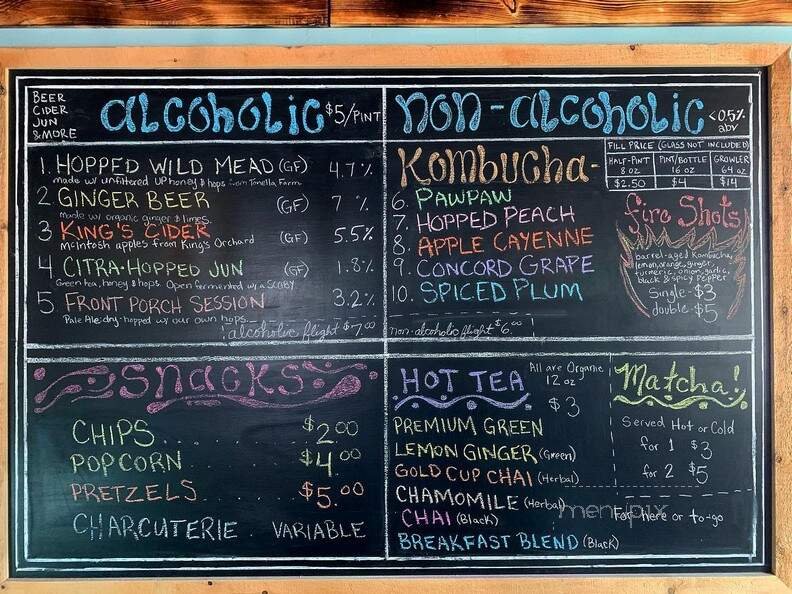 BEER
CIDER
JUN
& MORE
ALCOHOLIC $5/PINT
1. HOPPED WILD MEAD (GF) 4.7%
made w/ unfiltered UP honey & hops from Tonella Farm
2 GINGER BEER (GF) 7%
made w/ organic ginger & limes
3 KING'S CIDER (GF) 5.5%
McIntosh apples from King's Orchard
4 CITRA-HOPPED JUN (GF) 1.8%
Green tea, honey & hops. Open fermented w/ a SCOBY
5 FRONT PORCH SESSION 3.2%
Pale Ale: dry-hopped w/ our own hops...
alcoholic flight $7.00
NON-ALCOHOLIC <0.5% abv
KOMBUCHA-
FILL PRICE (GLASS NOT INCLUDED)
HALF-PINT PINT/BOTTLE GROWLER
8 oz 16 oz 64 oz
$2.50 $4 $14
6. PAWPAW
7. HOPPED PEACH
8. APPLE CAYENNE
9. CONCORD GRAPE
10. SPICED PLUM
non-alcoholic flight $6.00
Fire Shots
barrel-aged Kombucha,
lemon, orange, ginger,
turmeric, onion, garlic,
black & spicy pepper
Single-$3
double-$5
SNACKS
CHIPS.......$2.00
POPCORN......$4.00
PRETZELS......$5.00
CHARCUTERIE . VARIABLE
HOT TEA
All are Organic
12 oz
$3
PREMIUM GREEN
LEMON GINGER (Green)
GOLD CUP CHAI (Herbal)
CHAMOMILE (Herbal)
CHAI (Black)
BREAKFAST BLEND (Black)
Matcha!
Served Hot or Cold
for 1 $3
for 2 $5
For here or to-go
menupix